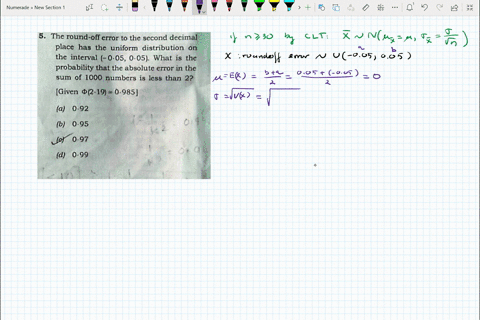 Numerade » New Section 1
5. The round-off error to the second decimal
place has the uniform distribution on
the interval (-0·05, 0·05). What is the
probability that the absolute error in the
sum of 1000 numbers is less than 2?
[Given Φ(2·19) = 0·985]
(a) 0·92
(b) 0·95
(c) 0·97
(d) 0·99
if n ≥ 30 by CLT: X̄ ~ N(μx̄ = μ, σx̄ = σ/√n)
X : roundoff error ~ U(-0.05, 0.05)
a b
μ = E(x) = b+a/2 = 0.05 + (-0.05)/2 = 0
σ = √V(x) = √